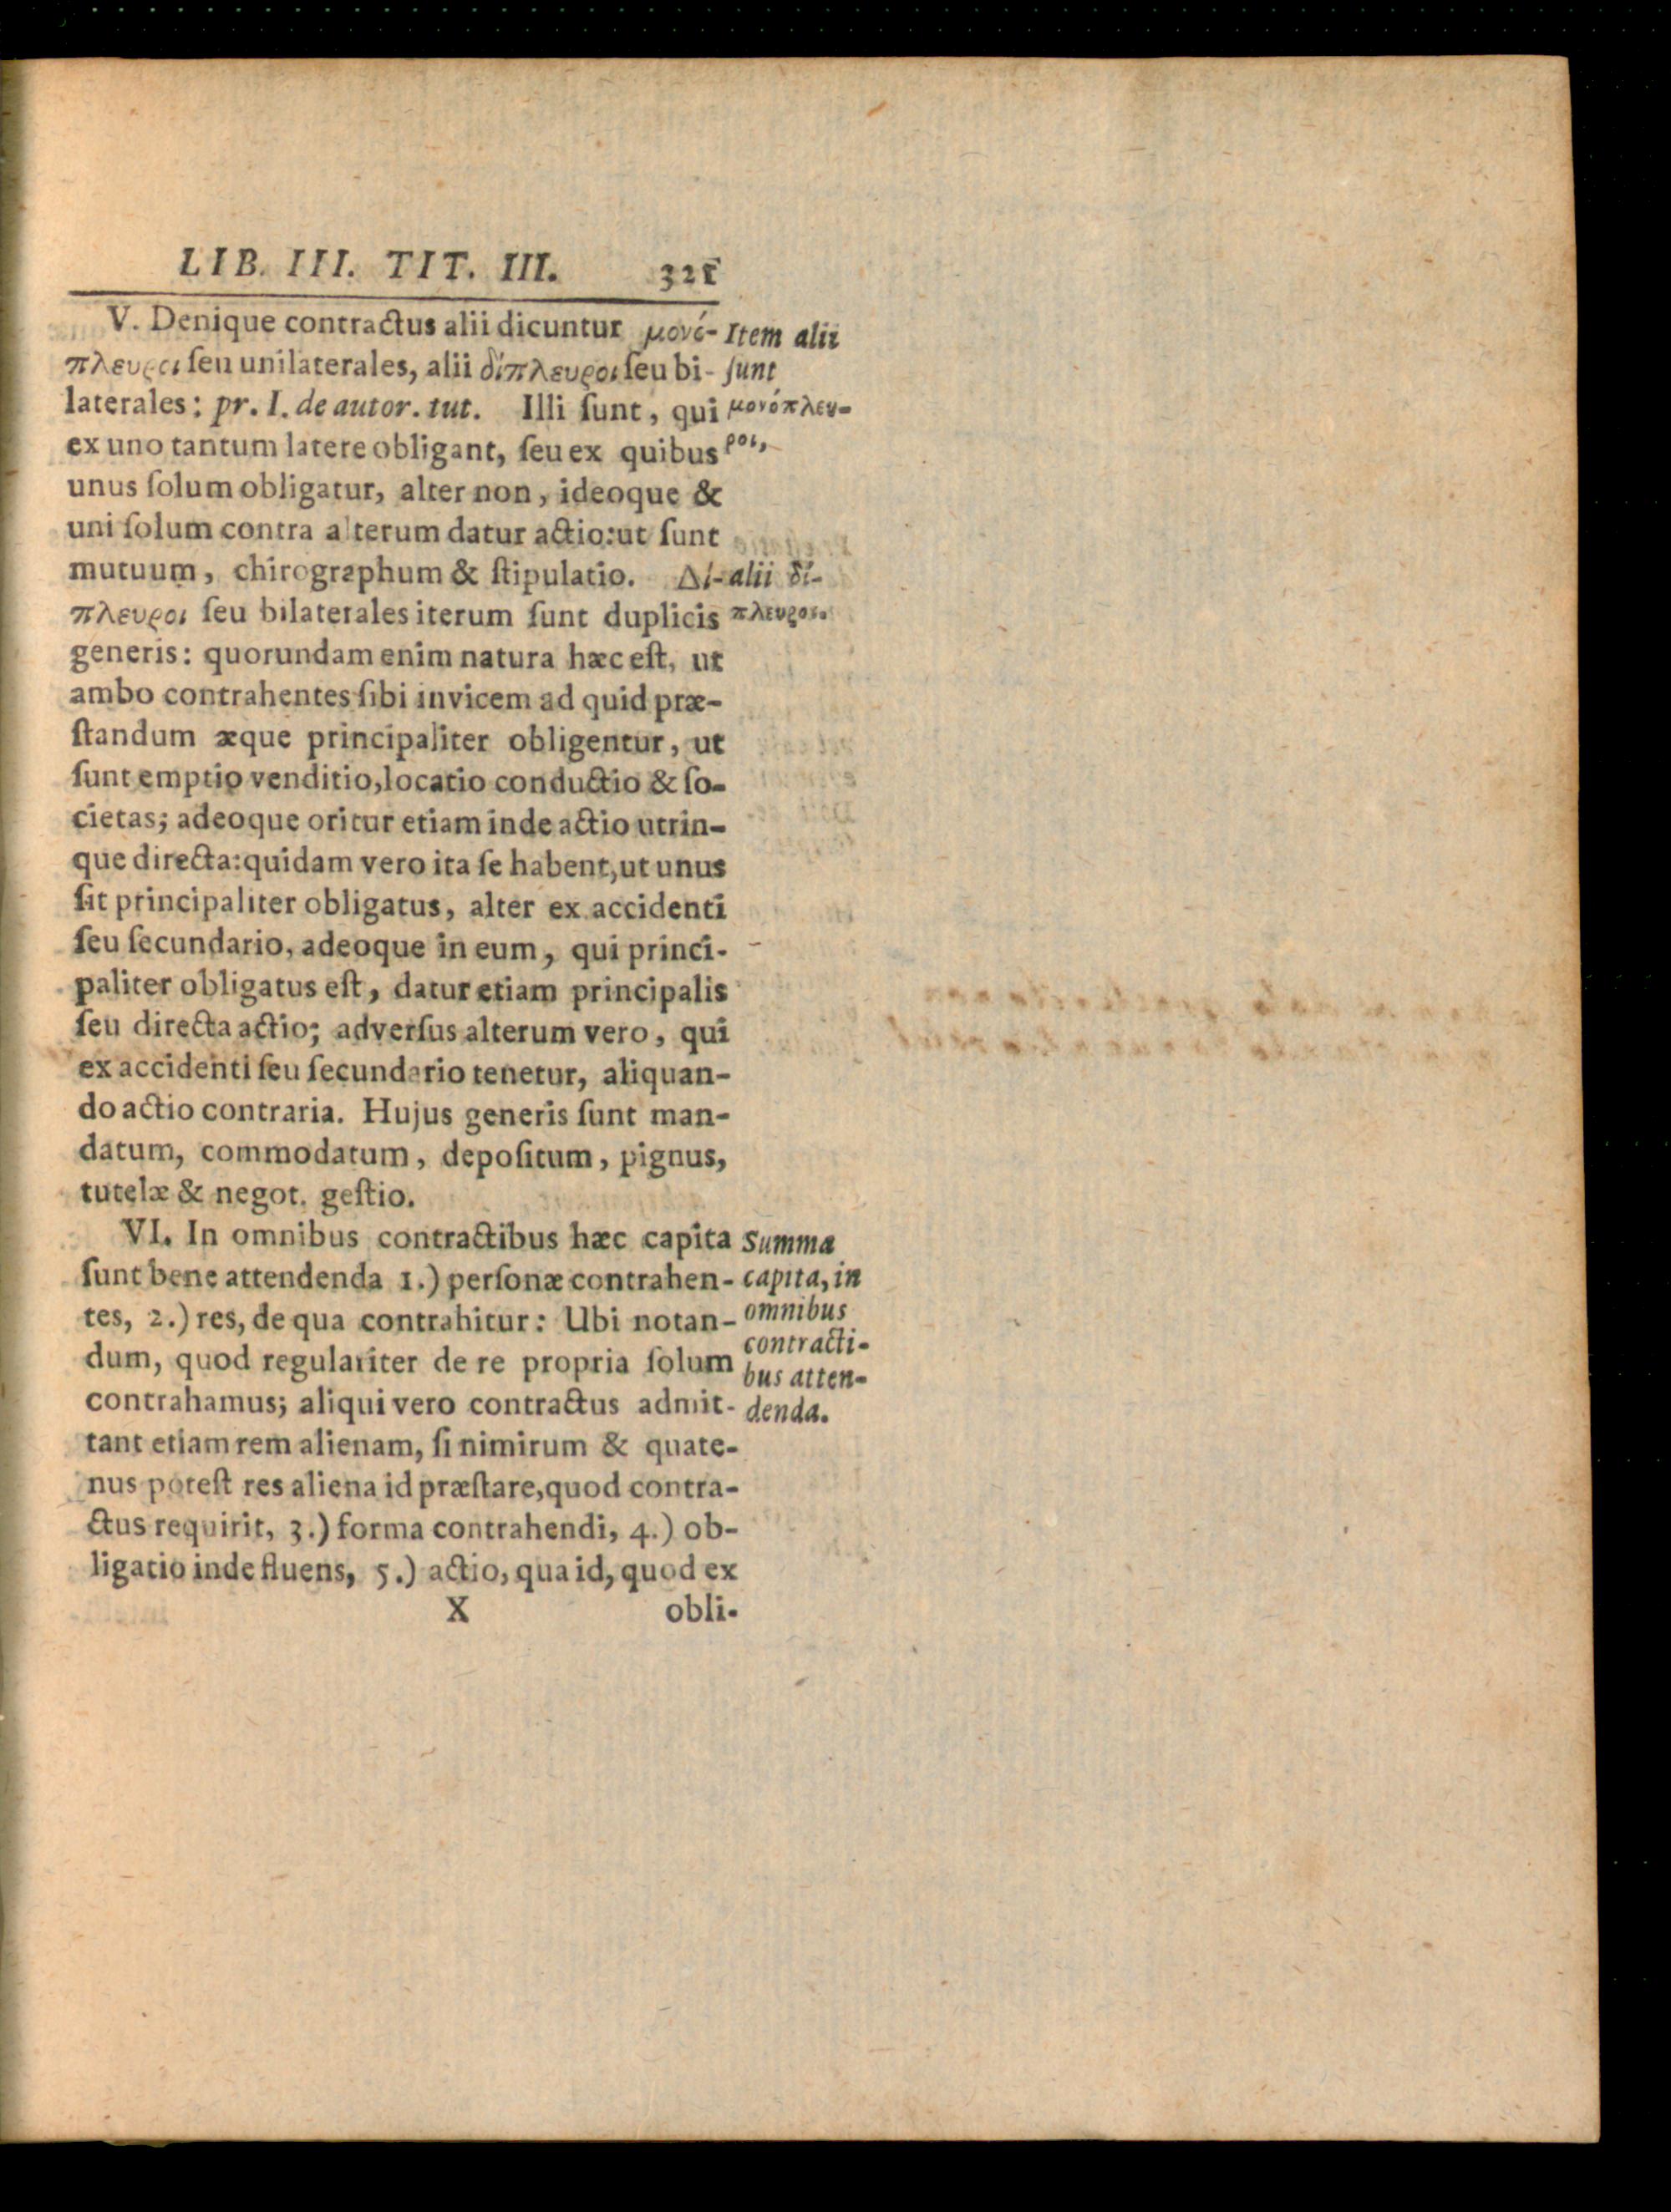 LIB. III. TIT. III. 321
V. Denique contractus alii dicuntur μονό-
πλευροι ſeu unilaterales, alii δίπλευροι ſeu bi-
laterales: pr. I. de autor. tut. Illi ſunt, qui
ex uno tantum latere obligant, ſeu ex quibus
unus ſolum obligatur, alter non, ideoque &
uni ſolum contra alterum datur actio: ut ſunt
mutuum, chirographum & ſtipulatio. Δί-
πλευροι ſeu bilaterales iterum ſunt duplicis
generis: quorundam enim natura hæc eſt, ut
ambo contrahentes ſibi invicem ad quid præ-
ſtandum æque principaliter obligentur, ut
ſunt emptio venditio, locatio conductio & ſo-
cietas; adeoque oritur etiam inde actio utrin-
que directa: quidam vero ita ſe habent, ut unus
ſit principaliter obligatus, alter ex accidenti
ſeu ſecundario, adeoque in eum, qui princi-
paliter obligatus eſt, datur etiam principalis
ſeu directa actio; adverſus alterum vero, qui
ex accidenti ſeu ſecundario tenetur, aliquan-
do actio contraria. Hujus generis ſunt man-
datum, commodatum, depoſitum, pignus,
tutelæ & negot. geſtio.
VI. In omnibus contractibus hæc capita
ſunt bene attendenda 1.) perſonæ contrahen-
tes, 2.) res, de qua contrahitur: Ubi notan-
dum, quod regulariter de re propria ſolum
contrahamus; aliqui vero contractus admit-
tant etiam rem alienam, ſi nimirum & quate-
nus poteſt res aliena id præſtare, quod contra-
ctus requirit, 3.) forma contrahendi, 4.) ob-
ligatio inde fluens, 5.) actio, qua id, quod ex
X obli-
Item alii
ſunt
μονόπλευ-
ροι,
alii δί-
πλευροι.
Summa
capita, in
omnibus
contracti-
bus atten-
denda.